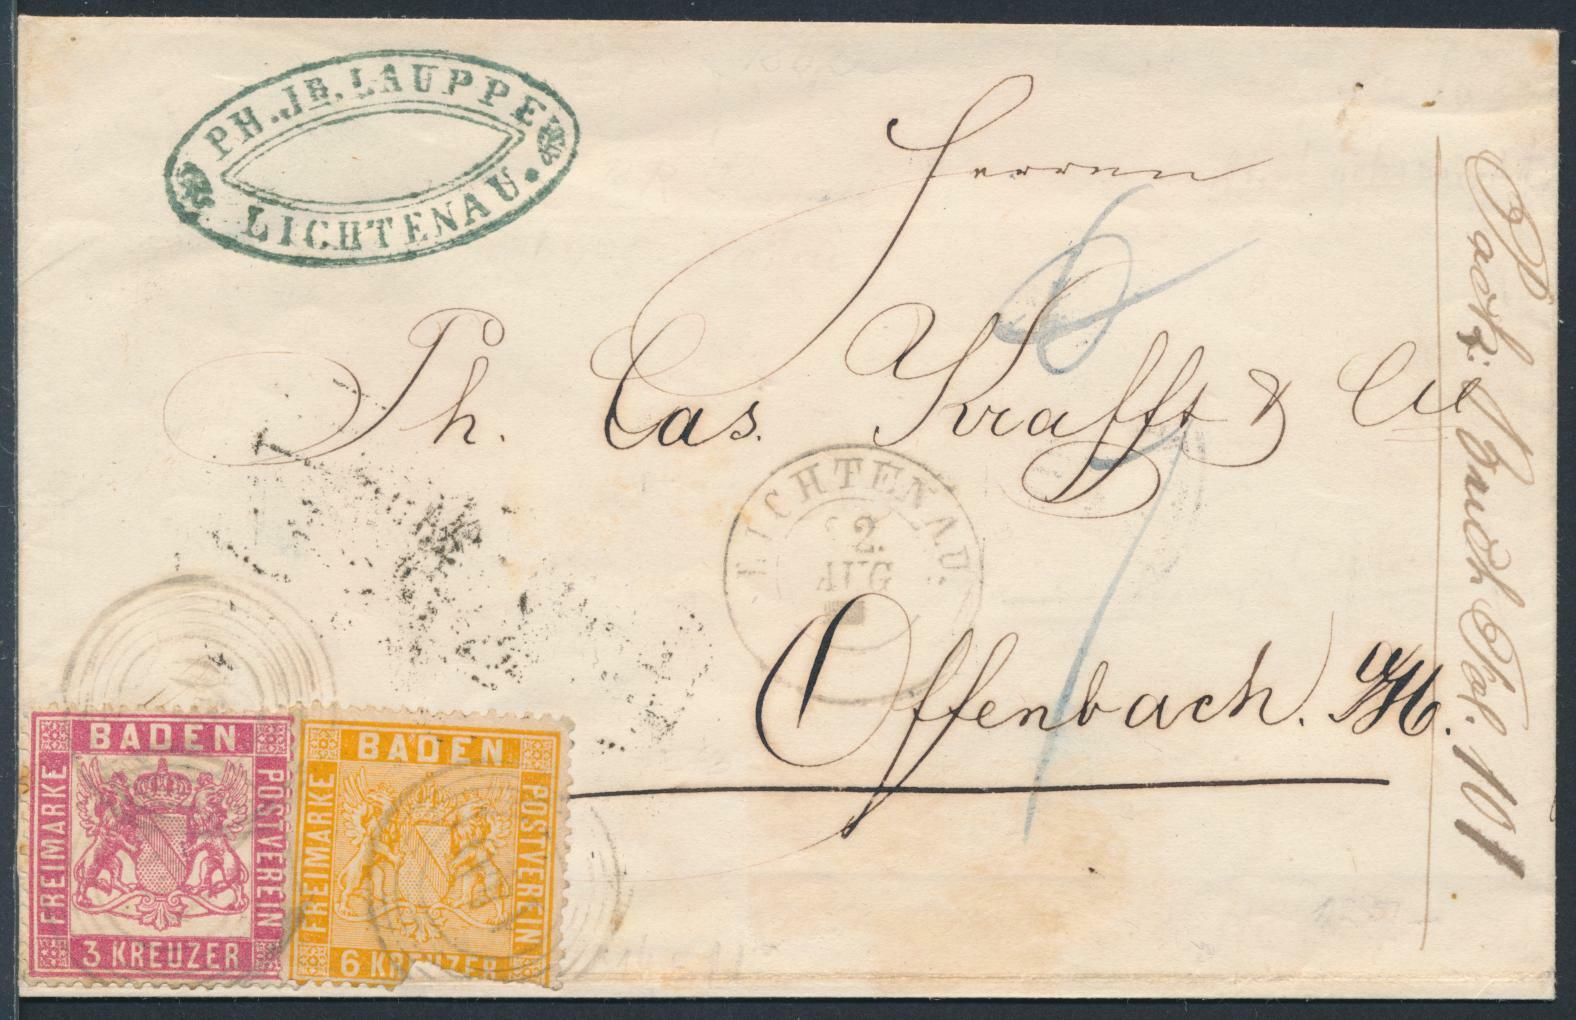 PH. JB. LAUPPE
LICHTENAU.
Herren
Ph. Cas. Krafft & Cie
Offenbach a/M.
LICHTENAU.
2.
AUG
6
7
Fol. 101
BADEN
FREIMARKE
POSTVEREIN
3 KREUZER
BADEN
FREIMARKE
POSTVEREIN
6 KREUZER